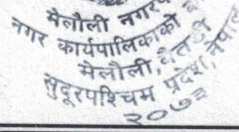 मेलौली नगर
नगर कार्यपालिकाको
मेलौली, बैतडी
सुदूरपश्चिम प्रदेश, नेपाल
२०७३